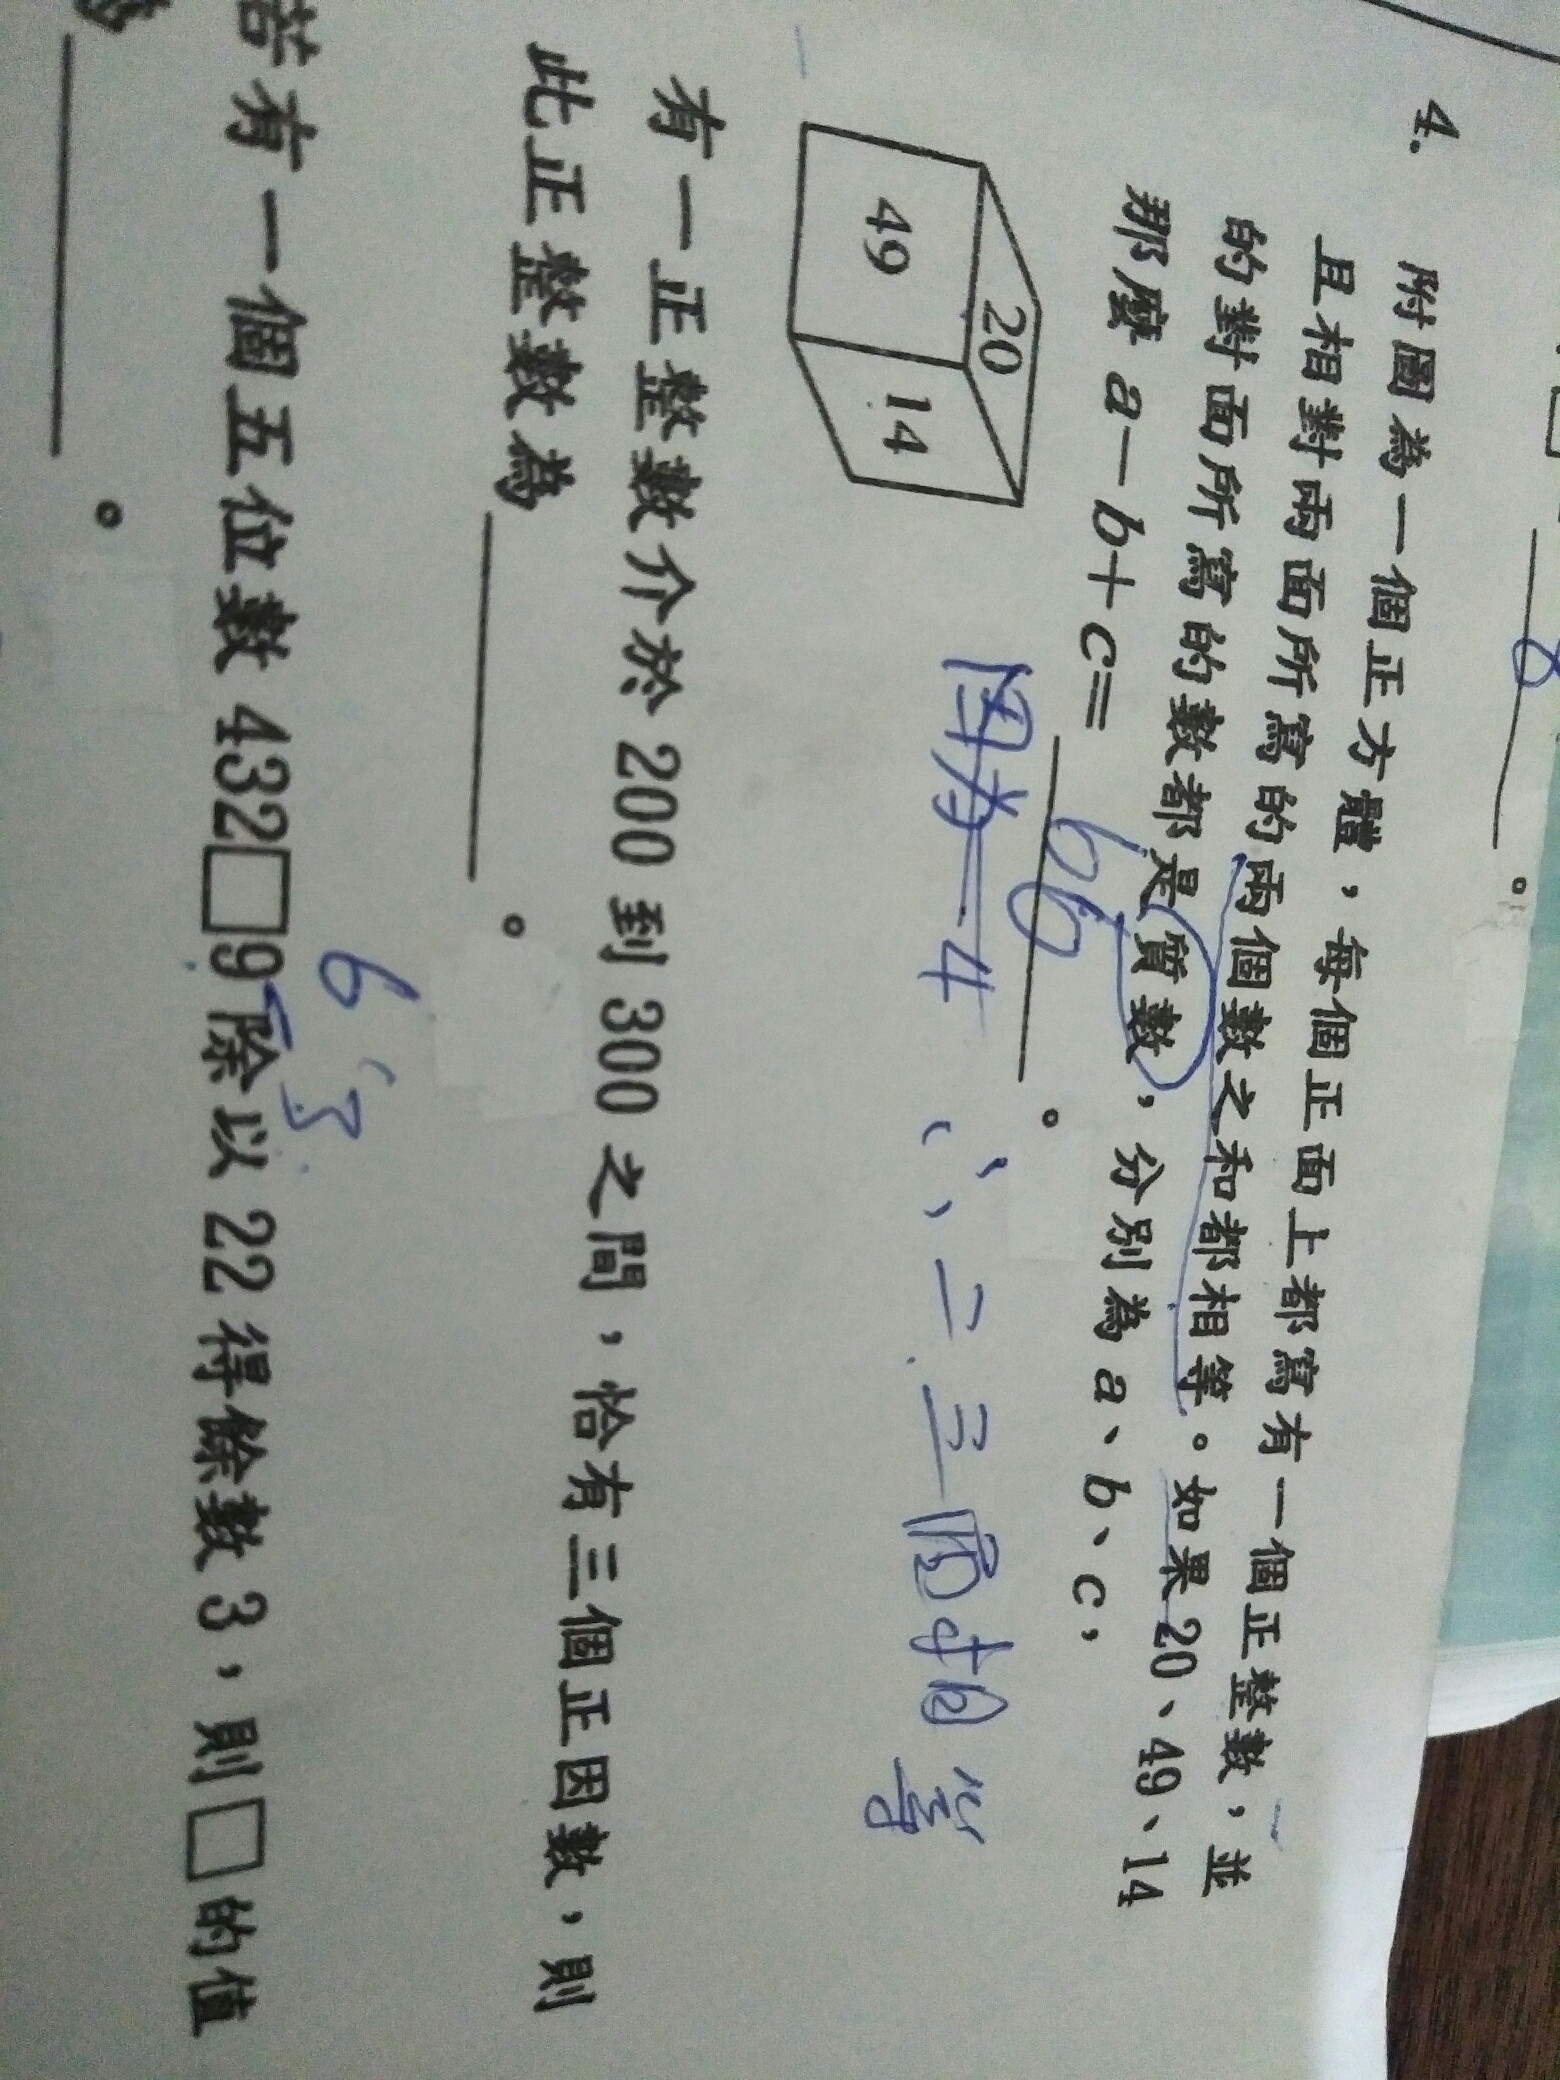 8
4. 附圖為一個正方體，每個正面上都寫有一個正整數，並
且相對兩面所寫的兩個數之和都相等。如果20、49、14
的對面所寫的數都是質數，分別為a、b、c，
那麼 a－b＋c= 66 。
20
49
14
因為一4 、二三面相等
有一正整數介於 200 到 300 之間，恰有三個正因數，則
此正整數為 。
6 3
若有一個五位數 432□9除以 22 得餘數 3，則□的值
為 。